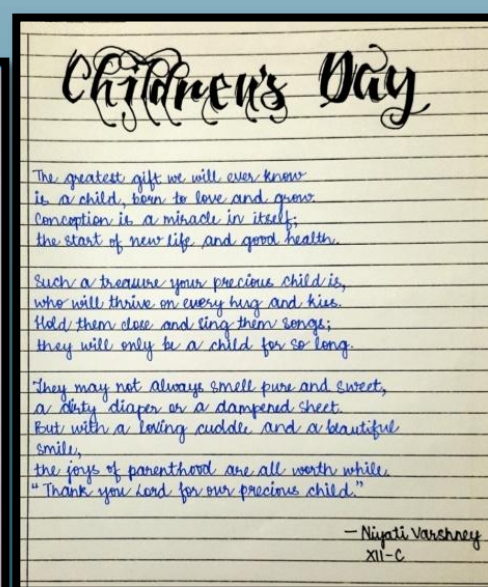 Children's Day
The greatest gift we will ever know
is a child, born to love and grow.
Conception is a miracle in itself;
the start of new life and good health.
Such a treasure your precious child is,
who will thrive on every hug and kiss.
Hold them close and sing them songs;
they will only be a child for so long.
They may not always smell pure and sweet,
a dirty diaper or a dampened sheet.
But with a loving cuddle and a beautiful
smile,
the joys of parenthood are all worth while.
"Thank you Lord for our precious child."
- Niyati Varshney
XII-C